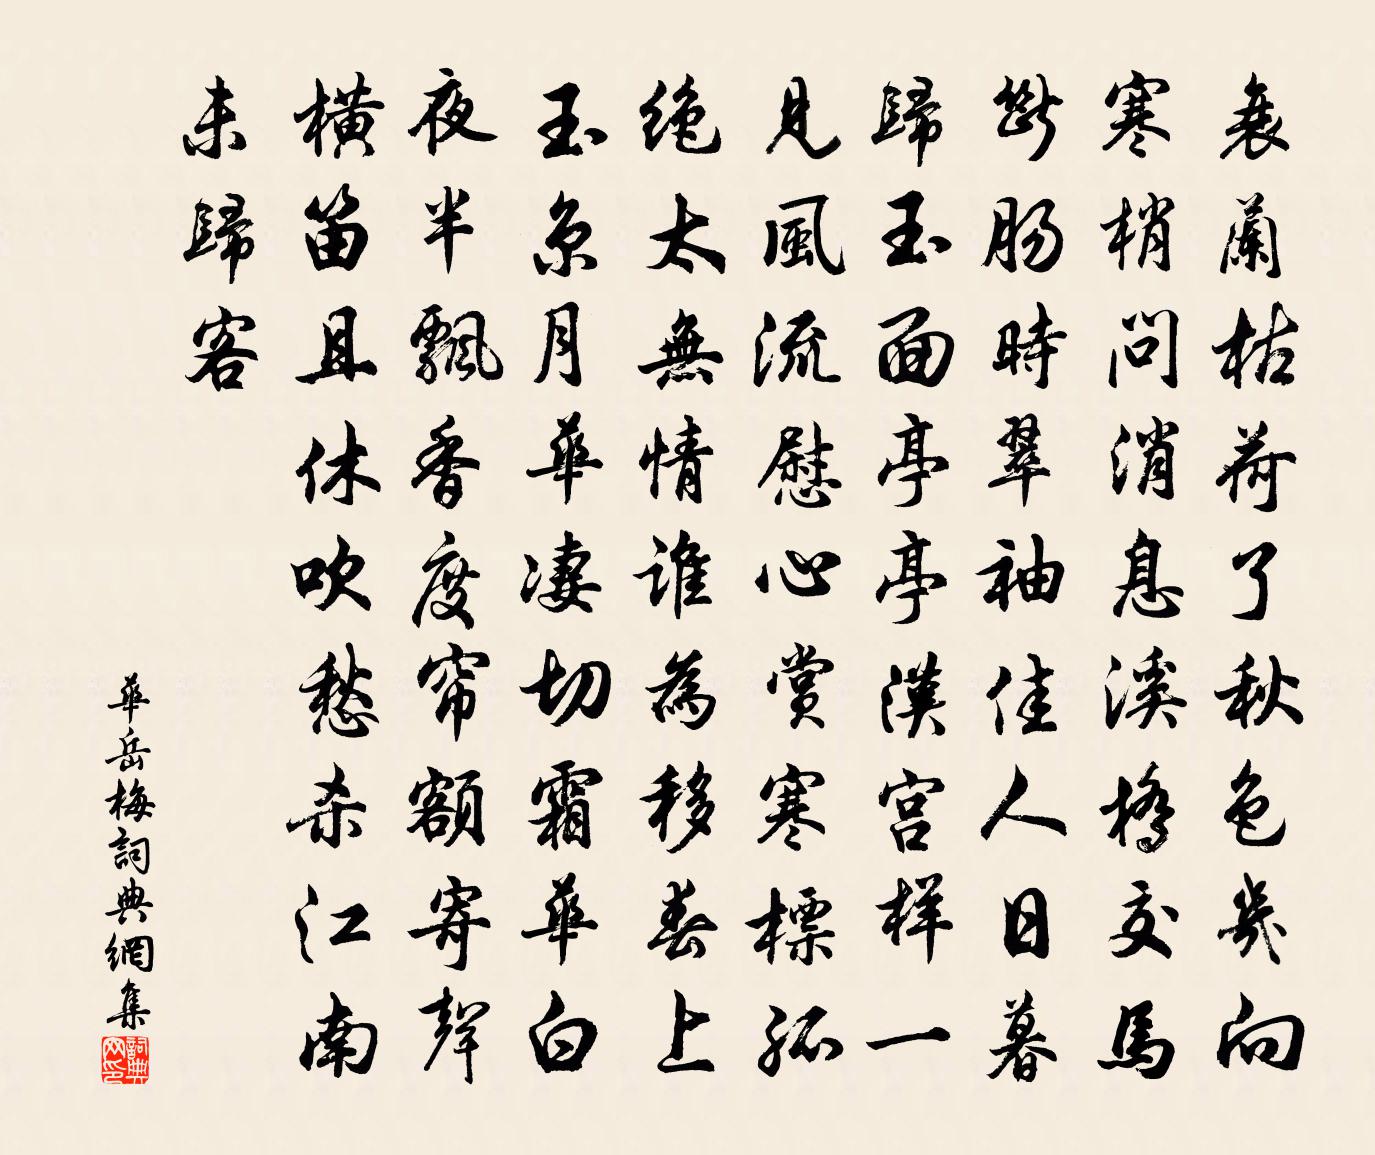 衰蘭枯荷了秋色幾向
寒梢問消息溪橋交馬
斷腸時翠袖佳人日暮
歸玉面亭亭漢宮样一
見風流慰心賞寒標孤
绝太無情誰為移春上
玉京月華凄切霜華白
夜半飄香度帘額寄聲
橫笛且休吹愁杀江南
未歸客
華岳梅詞典網集
詞典网印